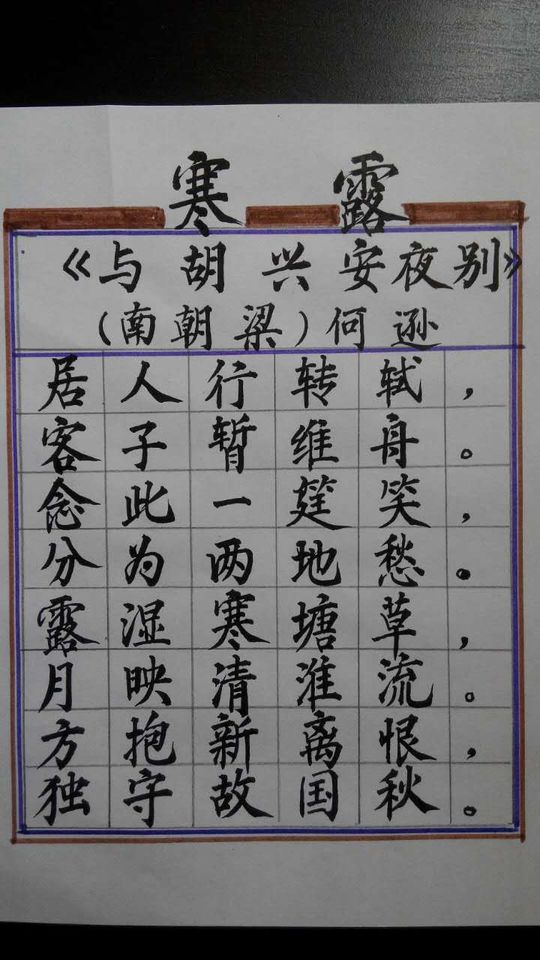 寒露
《与胡兴安夜别》
(南朝梁)何逊
居人行转轼，
客子暂维舟。
念此一筵笑，
分为两地愁。
露湿寒塘草，
月映清淮流。
方抱新离恨，
独守故国秋。